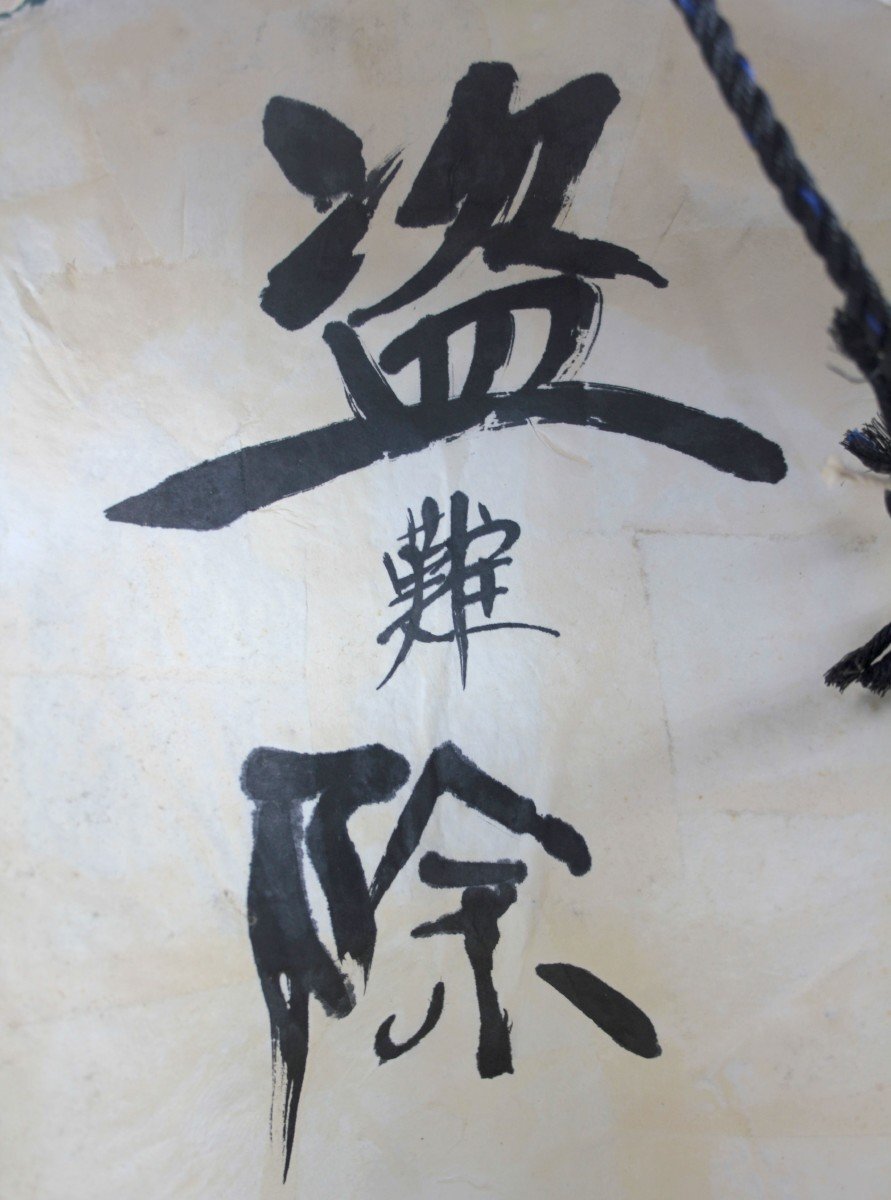 盗難除